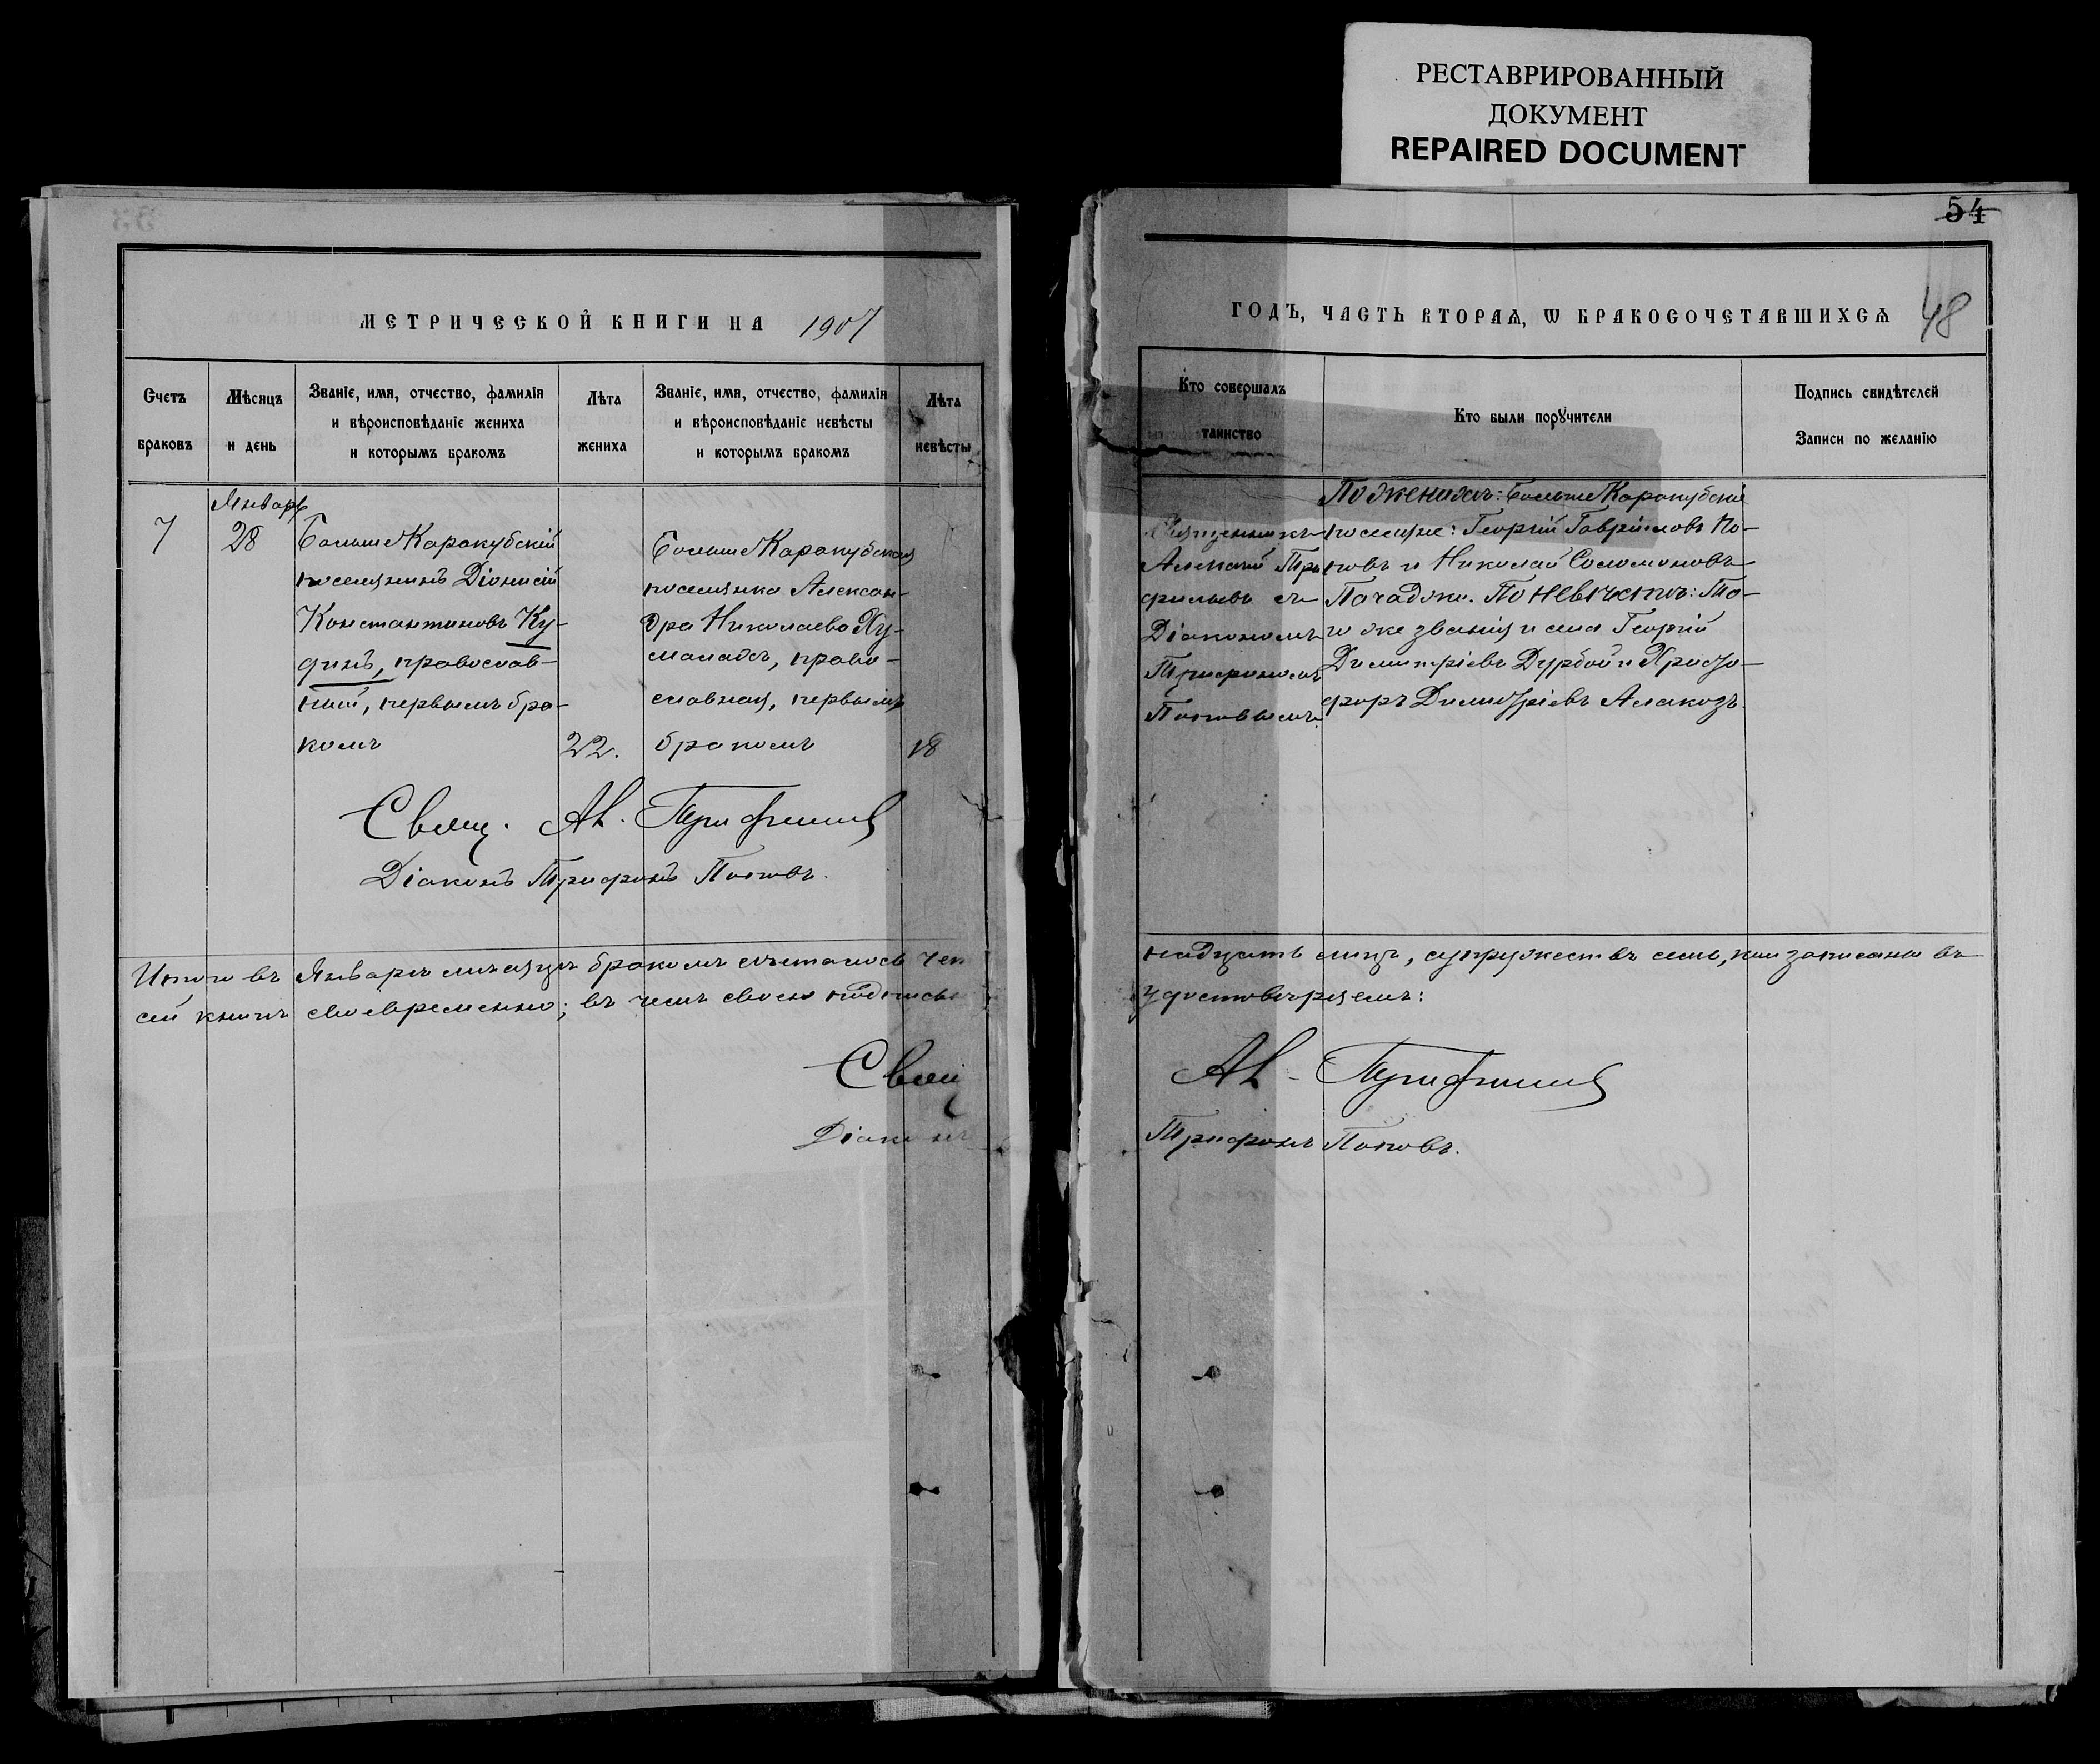 РЕСТАВРИРОВАННЫЙ
ДОКУМЕНТ
REPAIRED DOCUMENT
54
МЕТРИЧЕСКОЙ КНИГИ НА 1907
Счетъ
браковъ
Мѣсяцъ
и день
Званіе, имя, отчество, фамилія
и вѣроисповѣданіе жениха
и которымъ бракомъ
Лѣта
жениха
Званіе, имя, отчество, фамилія
и вѣроисповѣданіе невѣсты
и которымъ бракомъ
Лѣта
невѣсты
7
Январь
28
Больше Каракубскій
поселянинъ Діонисій
Константиновъ Ку-
динъ, православ-
ный, первымъ бра-
комъ
22.
Больше Каракубская
поселянка Алексан-
дра Николаева Ху-
маладзъ, право-
славная, первымъ
бракомъ
18
Свящ. Ал. Трифильевъ
Діаконъ Трифонъ Поповъ.
Итого въ Январѣ мѣсяцѣ бракомъ сочеталось чет
сей книгѣ своевременно; въ чемъ своею подписью
Свящ
Діаконъ
ГОДЪ, ЧАСТЬ ВТОРАѦ, Ѡ БРАКОСОЧЕТАВШИХСѦ 48
Кто совершалъ
таинство
Кто были порꙋчители
Подпись свидѣтелей
Записи по желанію
Священникъ
Алексій Три
фильевъ съ
Діакономъ
Трифономъ
Поповымъ.
По женихѣ: Больше Каракубскіе
поселяне: Георгій Гавріиловъ По-
повъ и Николай Соломоновъ
Пачаджи. По невѣстѣ: То-
го же званія и села Георгій
Димитріевъ Дурбой и Христо-
форъ Димитріевъ Алакозъ.
надцать лицъ, супружествъ семь, кои записаны въ
удостовѣряемъ:
Ал. Трифильевъ
Трифонъ Поповъ.